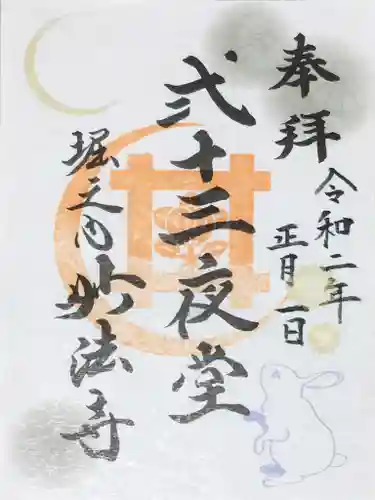 奉拝
令和二年
正月一日
弍十三夜堂
堀之内
妙法寺